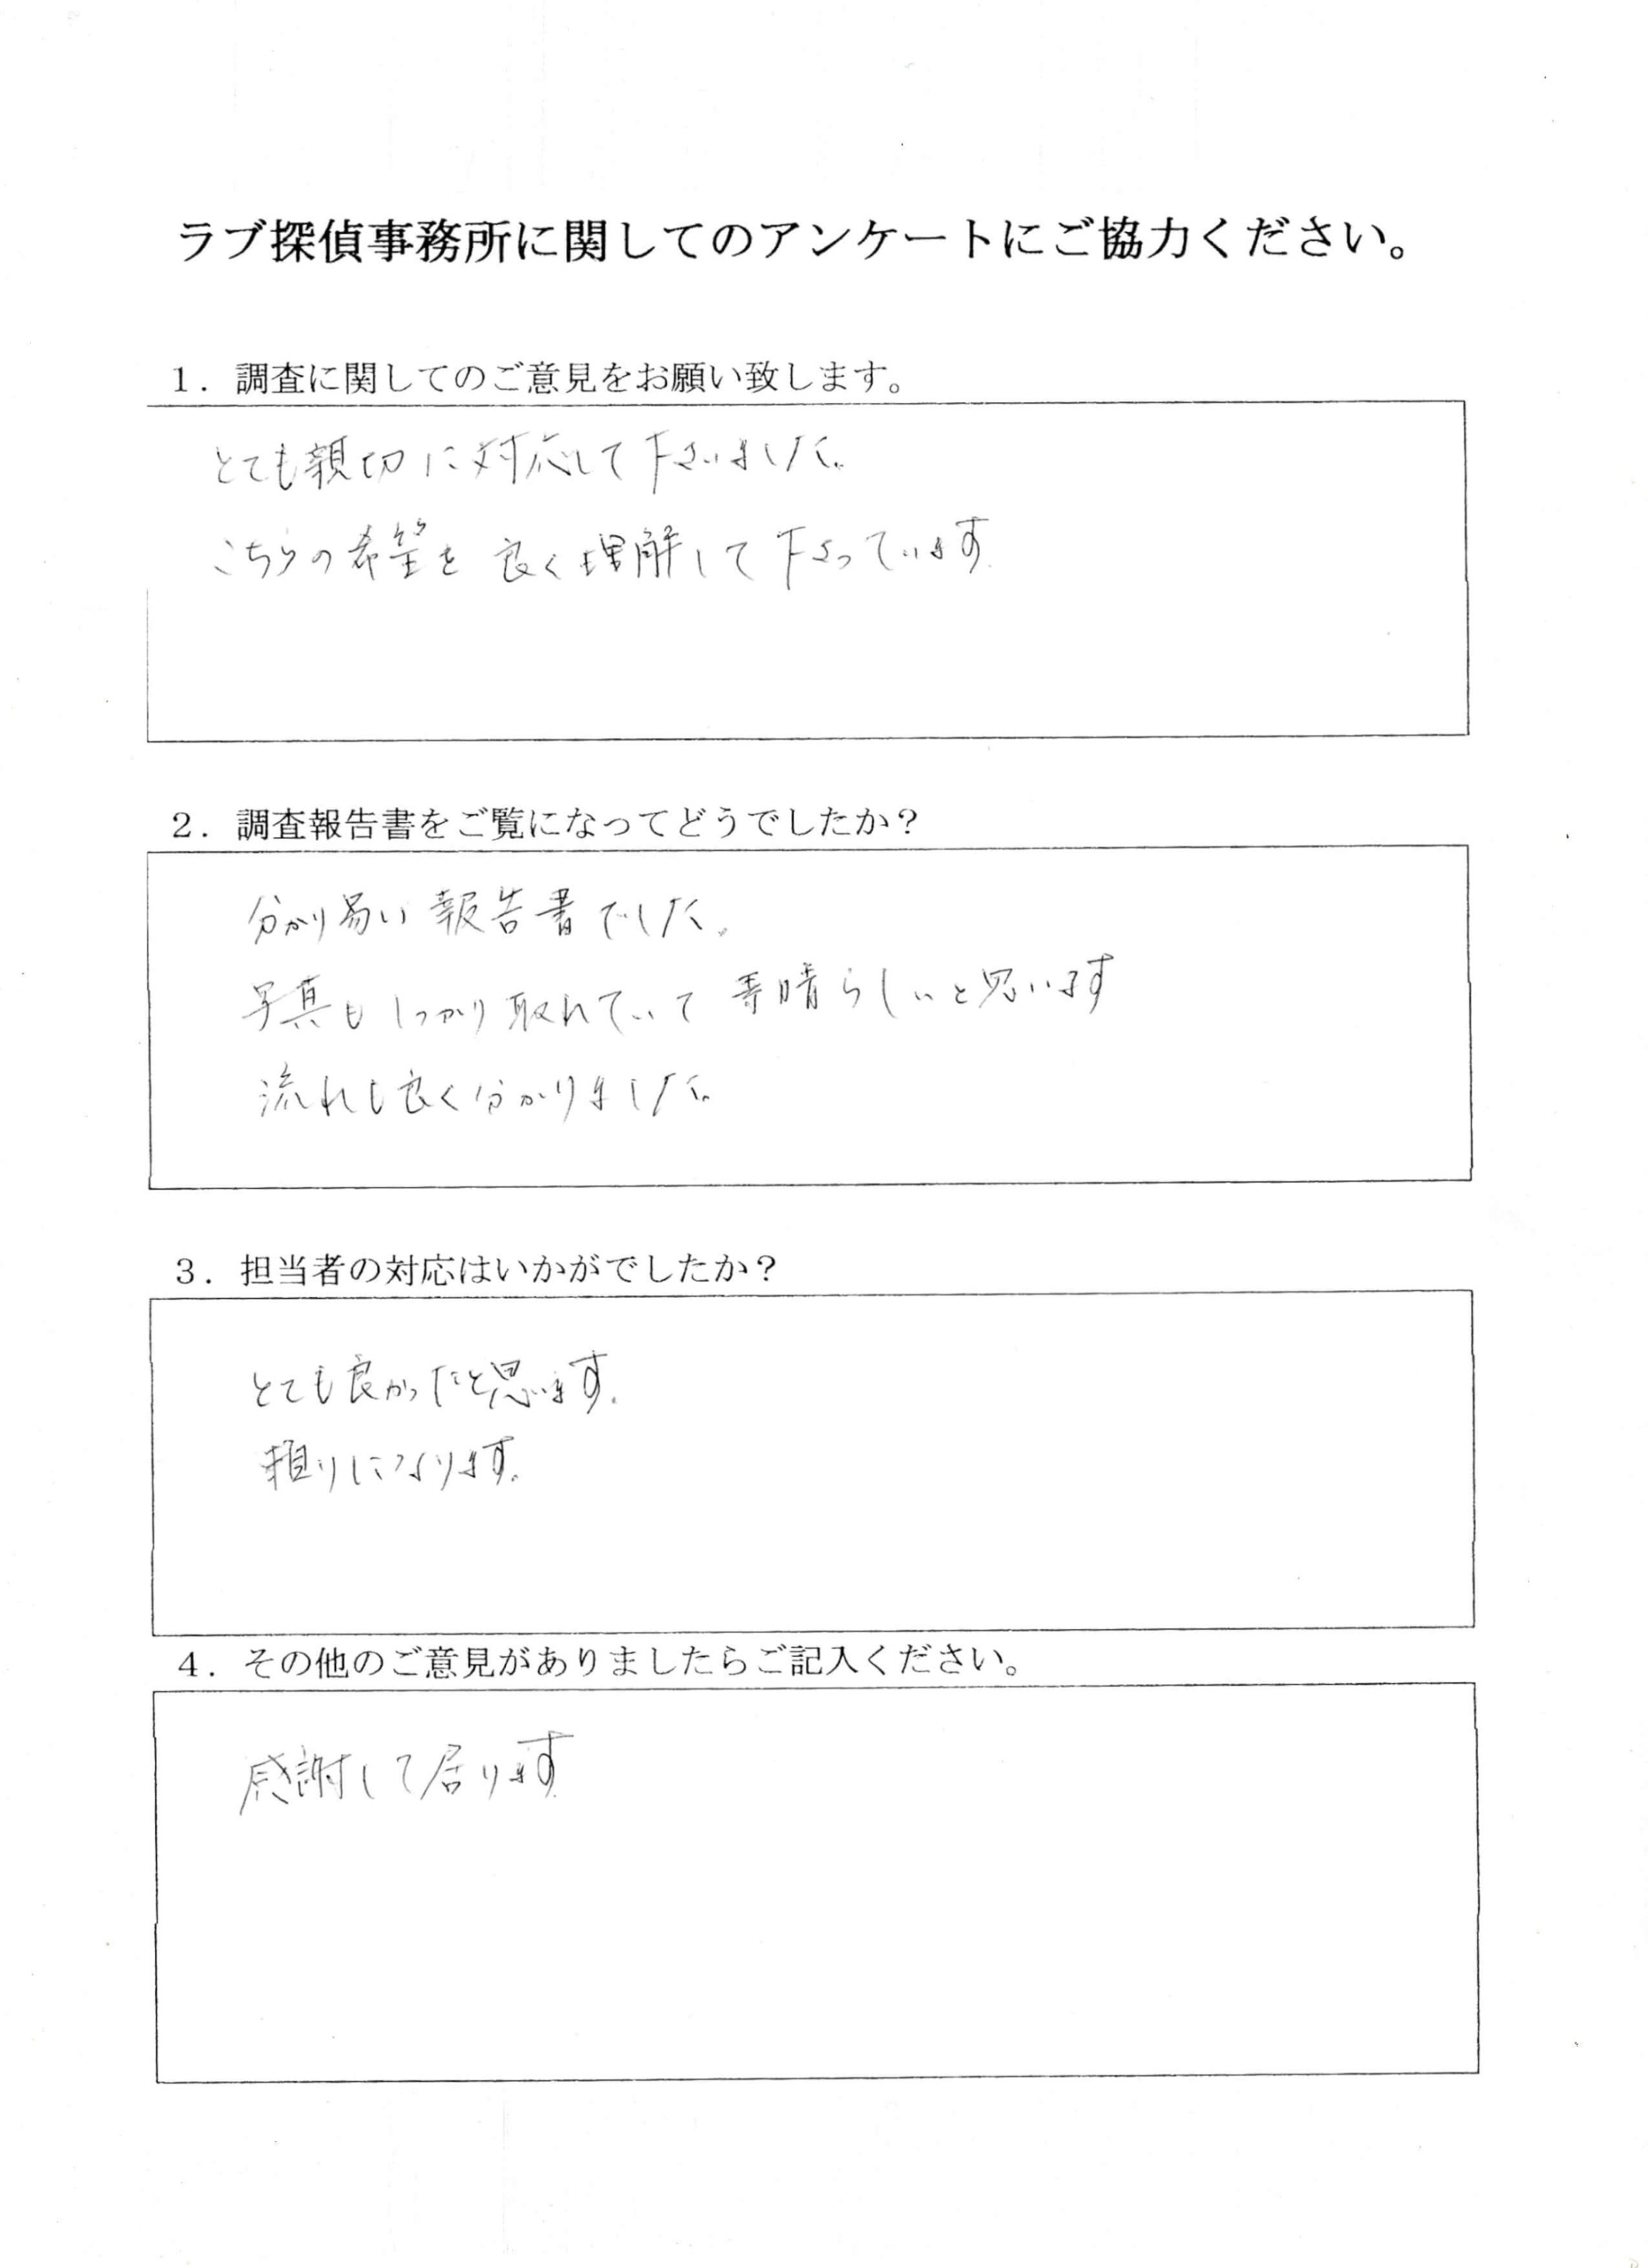 ラブ探偵事務所に関してのアンケートにご協力ください。
1．調査に関してのご意見をお願い致します。
とても親切に対応して下さいました。
こちらの希望を良く理解して下さっています.
2．調査報告書をご覧になってどうでしたか？
分かり易い報告書でした。
写真もしっかり取れていて素晴らしいと思います
流れも良く分かりました。
3．担当者の対応はいかがでしたか？
とても良かったと思います.
頼りになります.
4．その他のご意見がありましたらご記入ください。
感謝して居ります.